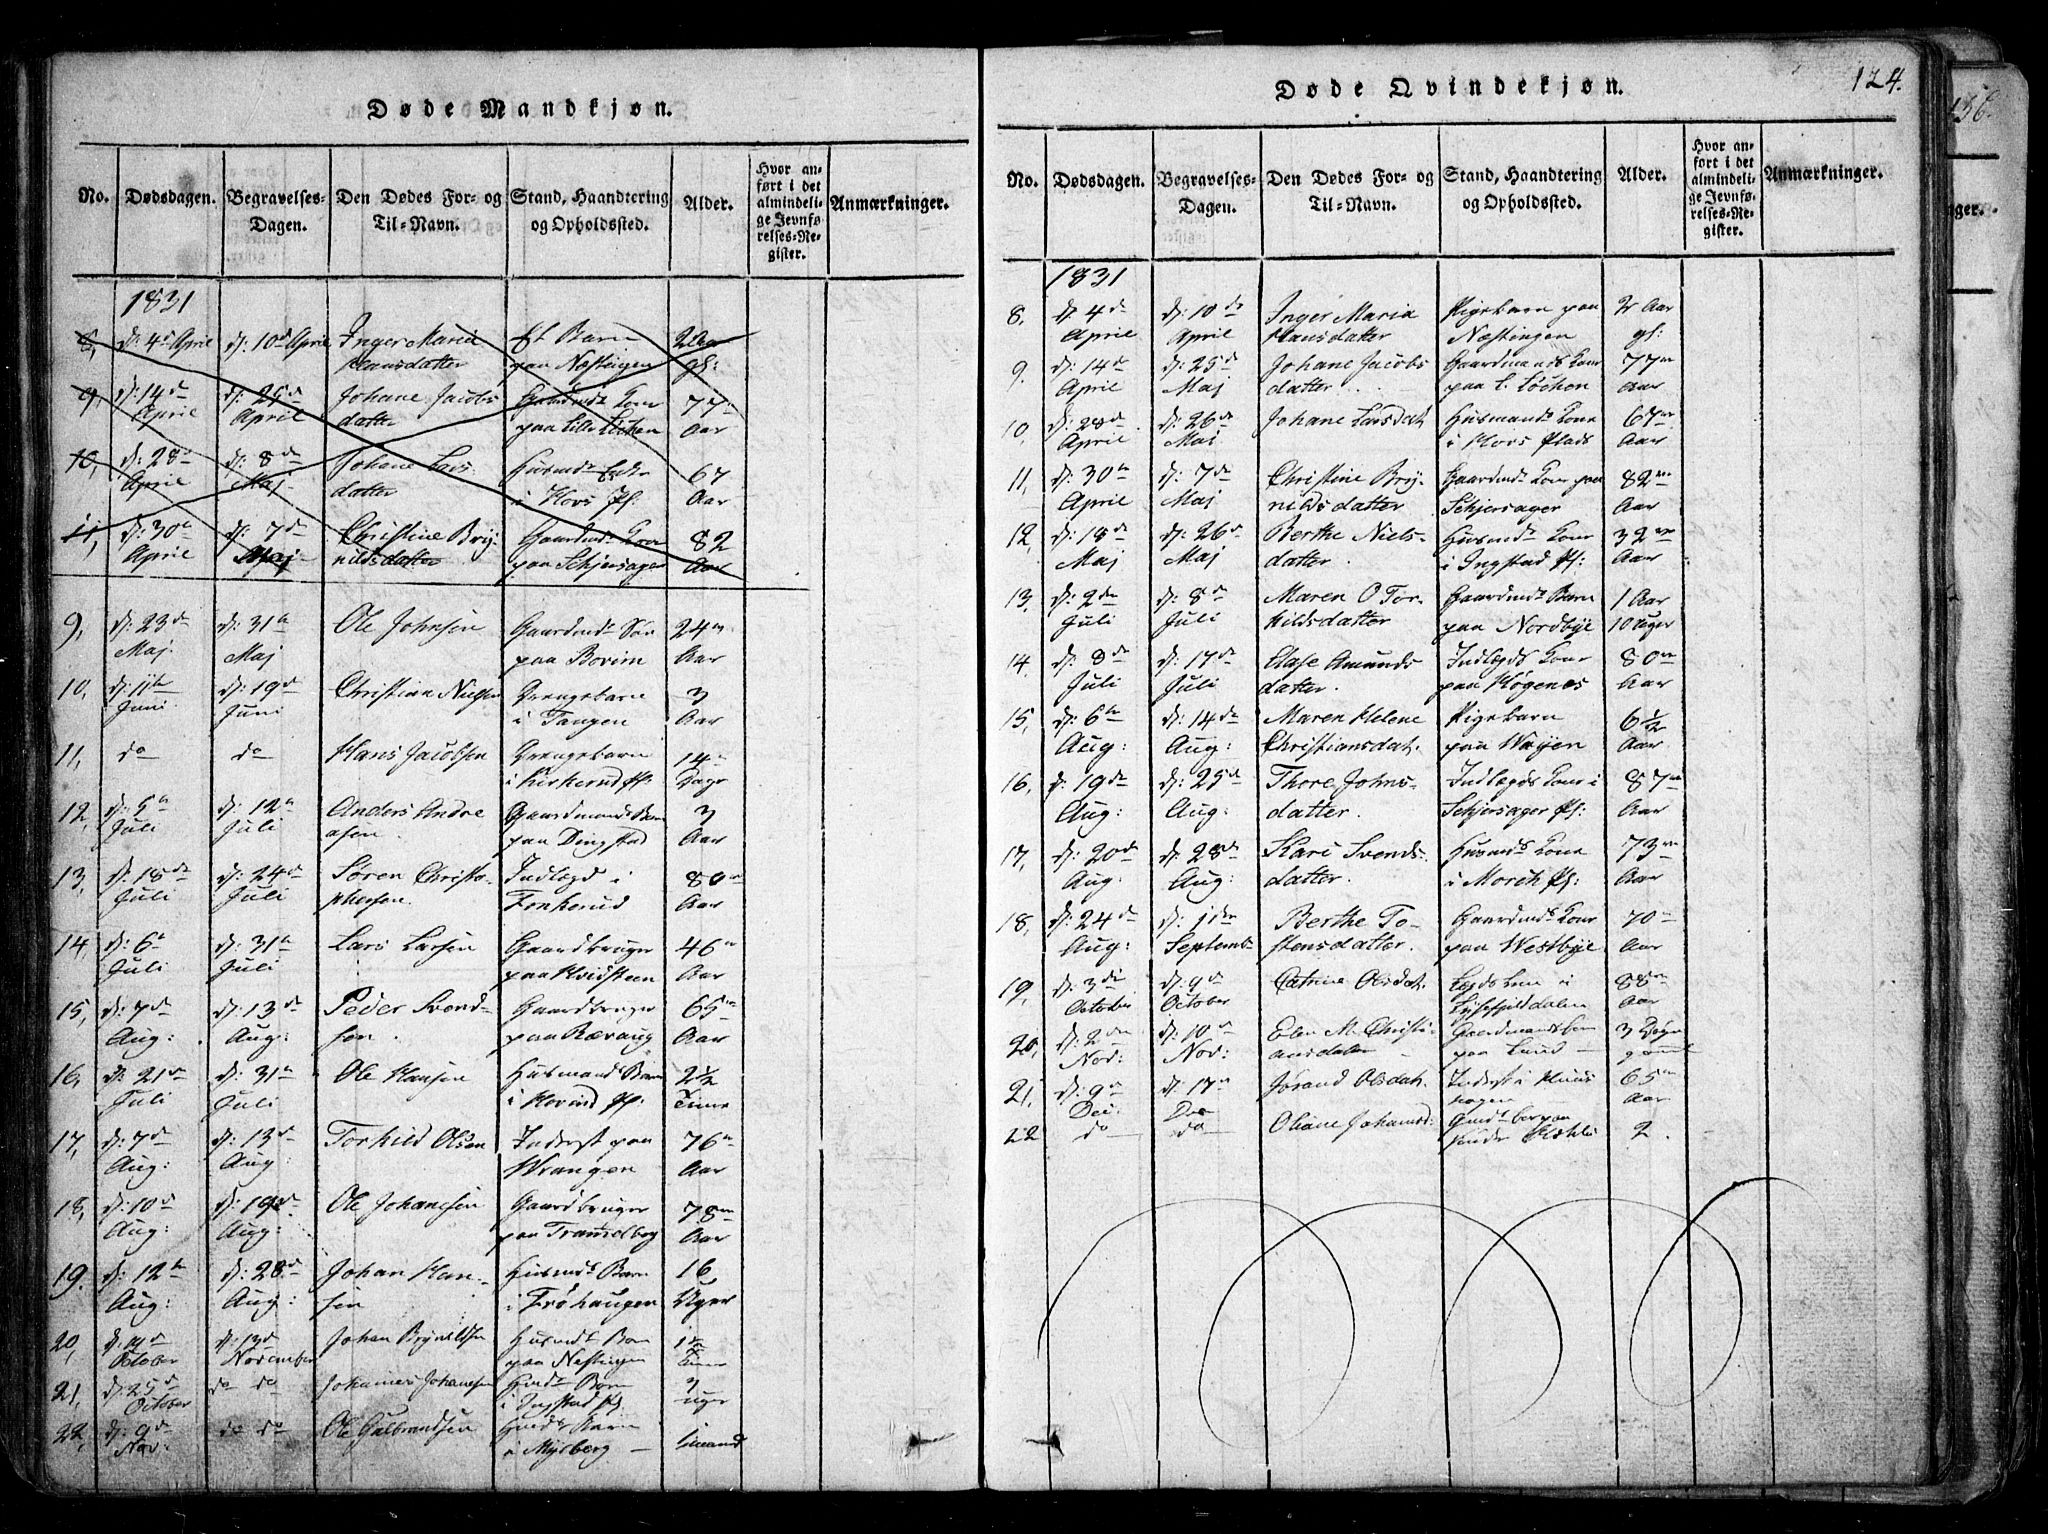 Døde Mandkjøn.
No. Dødsdagen. Begravelses-Dagen. Den Dødes For- og Til-Navn. Stand, Haandtering og Opholdssted. Alder. Hvor anført i det almindelige Jevnførelses-Register. Anmærkninger.
1831
8, d: 4de April d: 10de April Inger Maria Et Barn 2 Aar
Hansdatter paa Næstingen gl:
9, d: 14de d: 25de Johane Jacobs Gaardmds Kone 77
April April datter paa Lille Løcken Aar
10, d: 28de d: 8de Johane Lars- Husmds Enke 67
April Maj datter i Hovs Pl: Aar
11, d: 30te d: 7de Christine Bry- Gaardmds Kone 82
April Maj nildsdatter paa Schjersager Aar
9, d: 23de d: 31te Ole Johnsen Gaardmds Søn 24
Maj. Maj paa Bovim Aar
10, d: 11te d: 19de Christian Nielsen Drengebarn 3
Juni. Juni i Tangen Aar
11, do do Hans Jacobsen Drengebarn 14
i Kirkerud Pl: Dage
12, d: 5te d: 12te Anders Andre- Gaardmands Barn 3
Juli Juli asen. paa Dingstad Aar
13, d: 18de d: 24de Søren Christo- Indlagd i 80
Juli Juli phersen. Fonkerud Aar
14, d: 6te d: 31te Lars Larsen Gaardbruger 46
Juli Juli paa Hvidsteen Aar
15, d: 7de d: 13de Peder Svend- Gaardbruger 65
Aug: Aug: sen. paa Bæraug Aar
16, d: 21de d: 31te Ole Hansen Husmands Barn 2½
Juli Juli i Hovind Pl: Time
17, d: 7de d: 13de Torkild Olsen Inderst paa 76
Aug: Aug: Wrangen Aar
18, d: 10de d: 19de Ole Johanesen Gaardbruger 78
Aug: Aug: paa Tramelborg Aar
19. d: 12te d: 28de Johan Han- Husmds Barn 16
Aug: Aug: sen i Frøhaugen Uger
20, d: d: 13de Johan Brynildsen Husmds Barn
October November paa Nestingen
21, d: 25de do do Johannes Johanesen Husmds Barn 3
October i Ingstad Pl uger
22, d: 9de do do Ole Gulbrandsen Husmds Barn
Nov: i Mysberg

Døde Qvindekjøn. 124.
No. Dødsdagen. Begravelses-Dagen. Den Dødes For- og Til-Navn. Stand, Haandtering og Opholdssted. Alder. Hvor anført i det almindelige Jevnførelses-Register. Anmærkninger.
1831
8. d: 4de d: 10de Inger Maria Pigebarn paa 2 Aar
April April Hansdatter Næstingen gl:
9. d: 14de d: 25de Johane Jacobs Gaardmands Kone 77
April Maj datter paa L. Løchen Aar
10, d: 28de d: 26de Johane Larsdat. Husmands Kone 67
April Maj i Hovs Plads Aar
11, d: 30te d: 7de Christine Bry- Gaardmds Kone paa 82
April Maj nildsdatter Schjersager Aar
12, d: 18de d: 26de Berthe Niels- Husmds Kone 32
Maj Maj datter. i Ingstad Pl: Aar
13, d: 2den d: 8de Maren O Tor- Gaardmds Barn 1 Aar
Juli Juli kildsdatter paa Nordbye 10 uger
14, d: 8de d: 17de Else Amunds Indlagds Kone 80
Juli Juli datter. paa Høgenes Aar
15, d: 6te d: 14de Maren Helene Pigebarn 6½
Aug: Aug: Christiansdat. paa Waýen Aar
16, d: 19de d: 25de Thore Johns- Indlagds Kone i 87
Aug: Aug: datter. Schjersager Pl: Aar
17, d: 20de d: 28de Kari Svends- Husmds Kone 73
Aug. Aug: datter. i Morch Pl: Aar
18, d: 24de d: 1ste Berthe To- Gaardmds Kone 70
Aug: Septemb- stensdatter. paa Westbye Aar
19, d: 3die d: 9de Catrine Olsdat. i 88
October October Lysefjelddalen Aar
20, d: 2den d: 10de Elen M. Christi- Gaardmandsbarn 3 Døgn
Nov: Nov: ansdatter paa Lund
21, d: 9de d: 17de Jørand Olsdat. Inderst i Huus 65
Dec: Dec hagen Aar
22 do do Oliane Johansd: Gmds barn paa 2.
136.